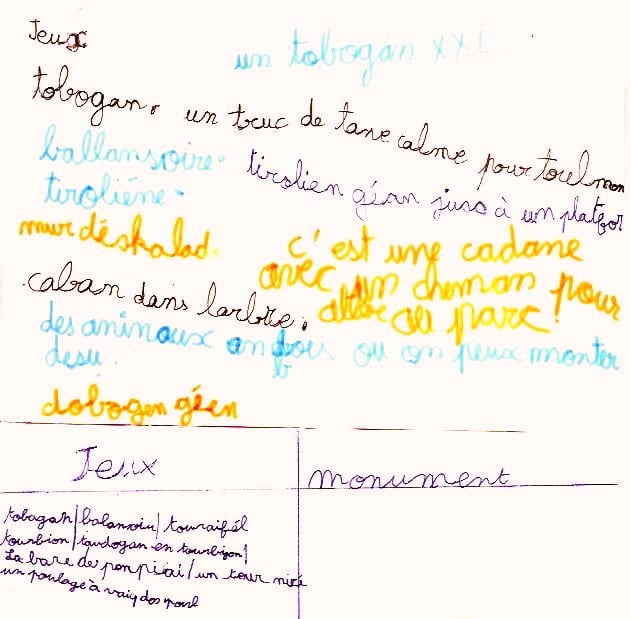 Jeux
un tobogan XXL.
tobogan. un truc de tane calme pour toulmon
ballansoire. tirolien géan jusc à un platfor
tiroliéne.
mur déskalad. c'est une cadane
avec un cheman pour
.caban dans larbre. allée au parc!
des animaux en bois ou on peux monter
desu. b
dobogen géen
Jeux monument
tobagan|balansoiu|touraifél
tourbion|taudogan en tourbigon|
La bare de ponpiéai/un tour
un poulage à